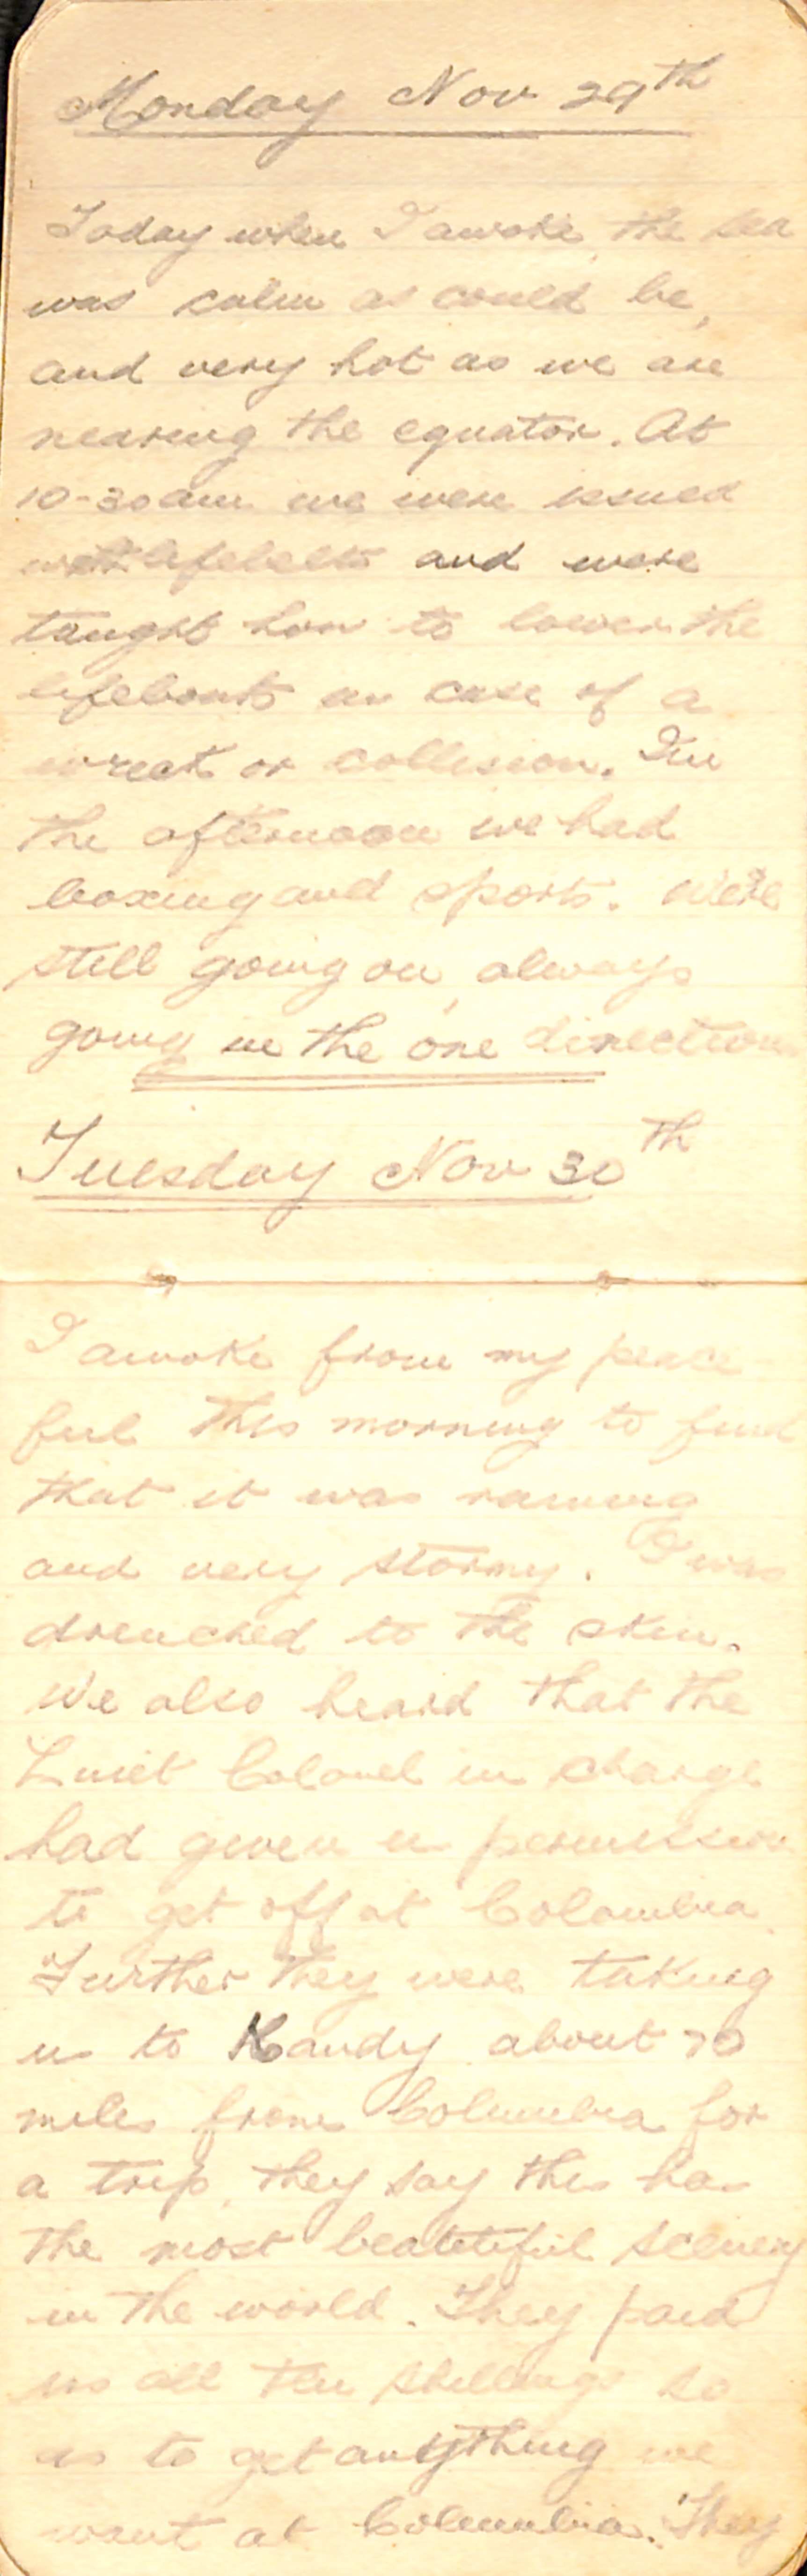 Monday Nov 29th
Today when I awoke, the sea
was calm as could be,
and very hot as we are
nearing the equator. At
10-30am we were issued
with lifebelts and were
taught how to lower the
lifeboats in case of a
wreck or collision. In
the afternoon we had
boxing and sports. We're
still going on, always
going in the one direction
Tuesday Nov 30th
I awoke from my peace-
ful this morning to find
that it was raining
and very stormy. I was
drenched to the skin.
We also heard that the
Luiet Colonel in charge
had given us permission
to get off at Colombia.
Further they were taking
us to Kandy about 70
miles from Columbia for
a trip, they say this has
the most beatetiful scenery
in the world. They paid
us all ten shillings so
as to get anything we
want at Columbia. They